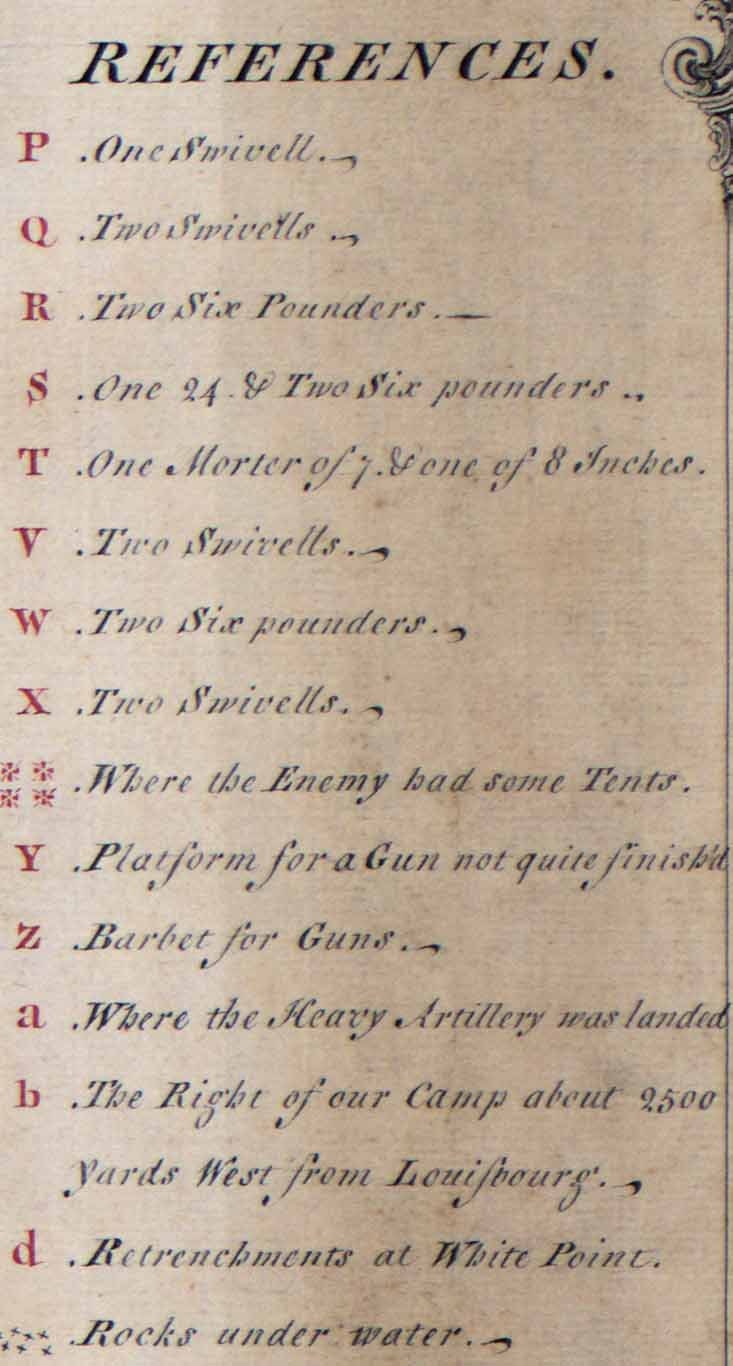 REFERENCES.
P .One Swivell.
Q .Two Swivells ..
R .Two Six Pounders.—
S .One 24. & Two Six pounders ..
T .One Morter of 7. & one of 8 Inches.
V .Two Swivells.
W .Two Six pounders.
X .Two Swivells.
.Where the Enemy had some Tents.
Y .Platform for a Gun not quite finish'd
Z .Barbet for Guns.
a .Where the Heavy Artillery was landed
b .The Right of our Camp about 2500
Yards West from Louiſbourg.
d .Retrenchments at White Point.
.Rocks under water.